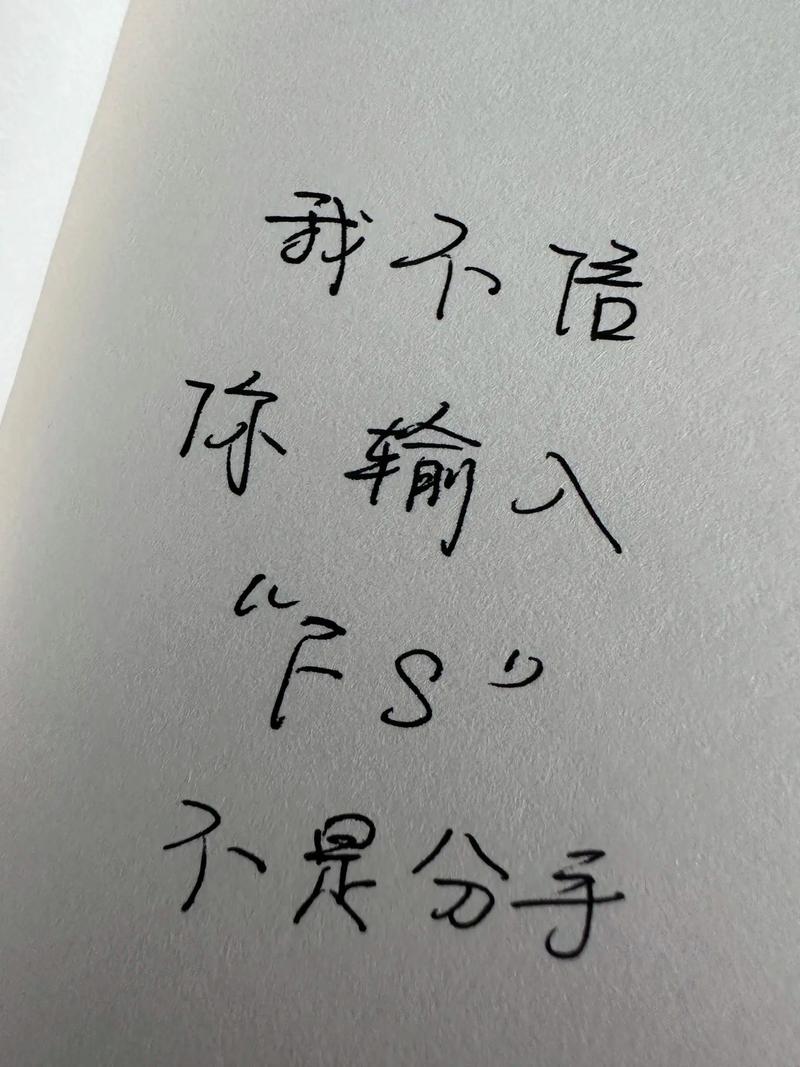 我不信
你输入
“FS”
不是分手